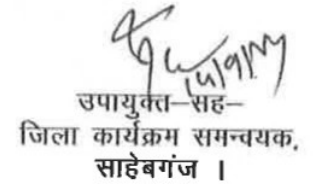 उपायुक्त–सह–
जिला कार्यक्रम समन्वयक,
साहेबगंज ।